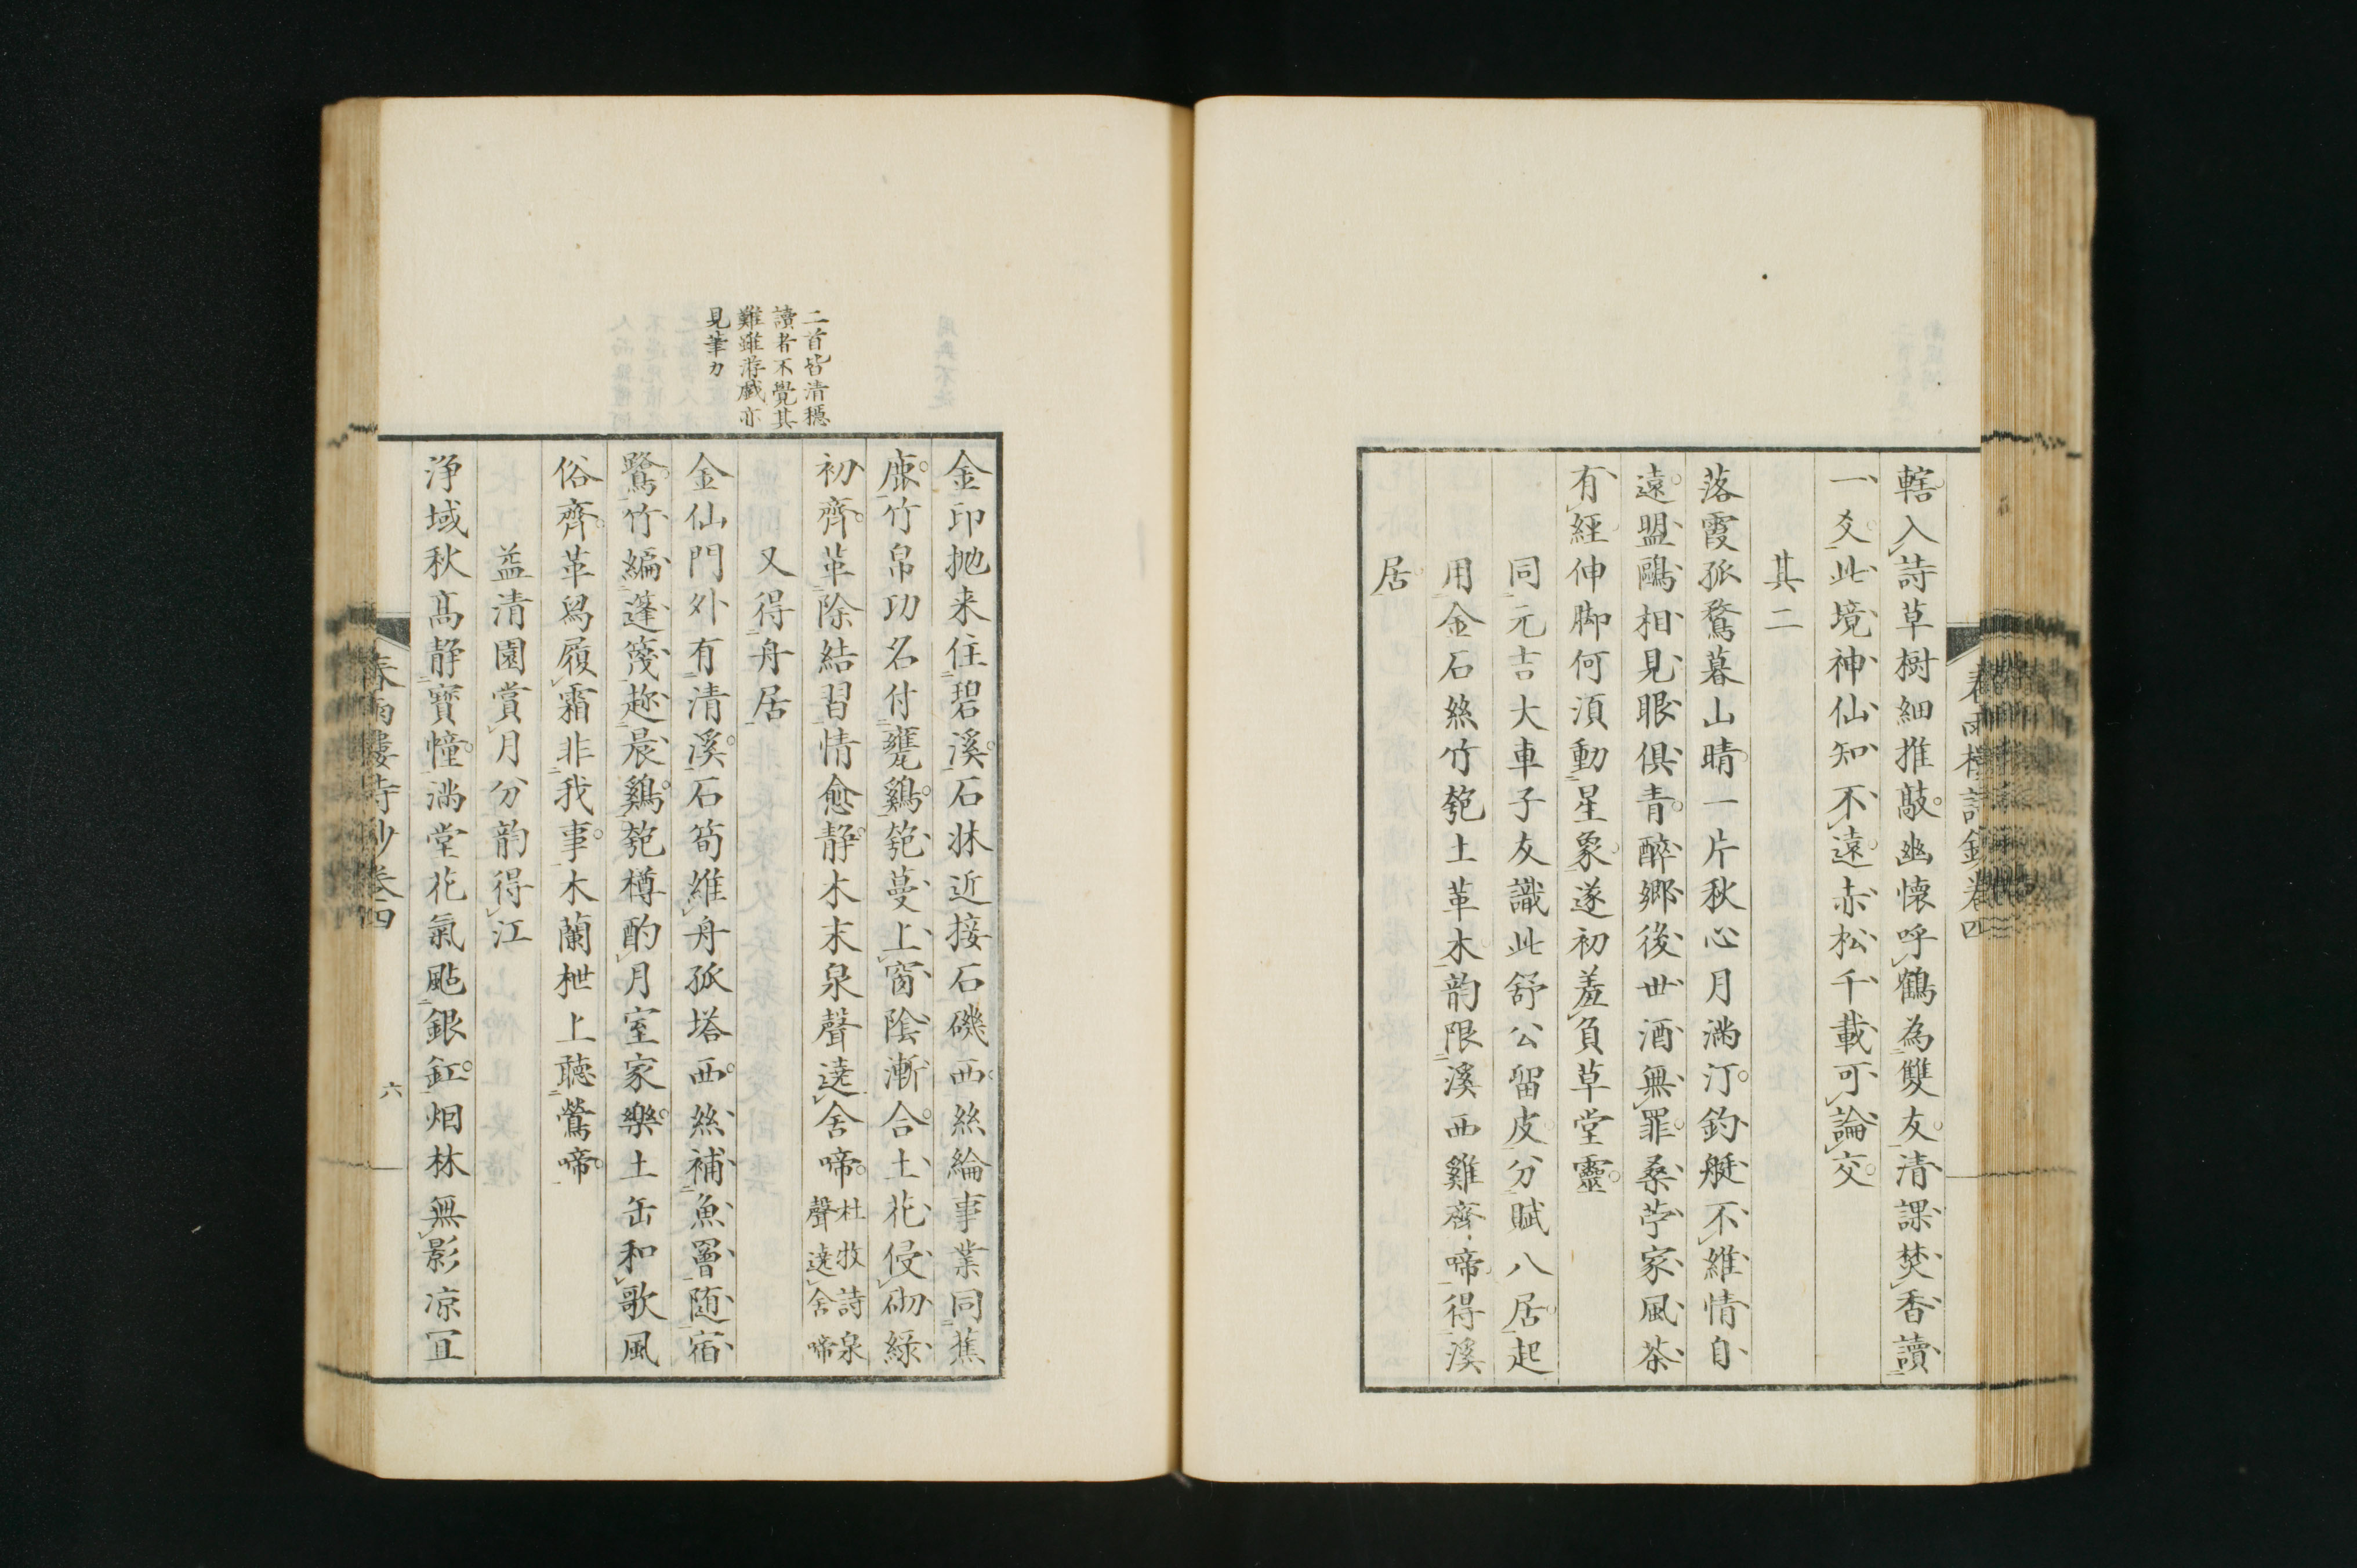 轄入詩草樹細推敲幽懐呼鶴為雙友清課焚香讀
一爻此境神仙知不遠赤松千載可論交
其二
落霞孤鶩暮山晴一片秋心月滿汀釣艇不維情自
遠盟鷗相見眼俱青醉郷後世酒無罪桑苧家風茶
有經伸脚何須動星象遂初羞負草堂靈
同元吉大車子友識此舒公留皮分賦八居起
用金石絲竹匏土革木韵限溪西雞齊啼得溪
居
春雨樓詩鈔卷四
二首皆清穩
讀者不覺其
難雖游戲亦
見筆力
金印抛来住碧溪石牀近接石磯西絲綸事業同蕉
鹿竹帛功名付甕鷄匏蔓上窗陰漸合土花侵砌緑
初齊革除結習情愈静木末泉聲遶舍啼杜牧詩泉
聲遶舍啼
又得舟居
金仙門外有清溪石筍維舟孤塔西絲補魚罾随宿
鷺竹編蓬䈊趂晨鷄匏樽酌月室家樂土缶和歌風
俗齊革舄履霜非我事木蘭枻上聴鶯啼
益清園賞月分韵得江
浄域秋髙静寶幢滿堂花氣颭銀釭烟林無影凉冝
春雨樓詩鈔卷四
六